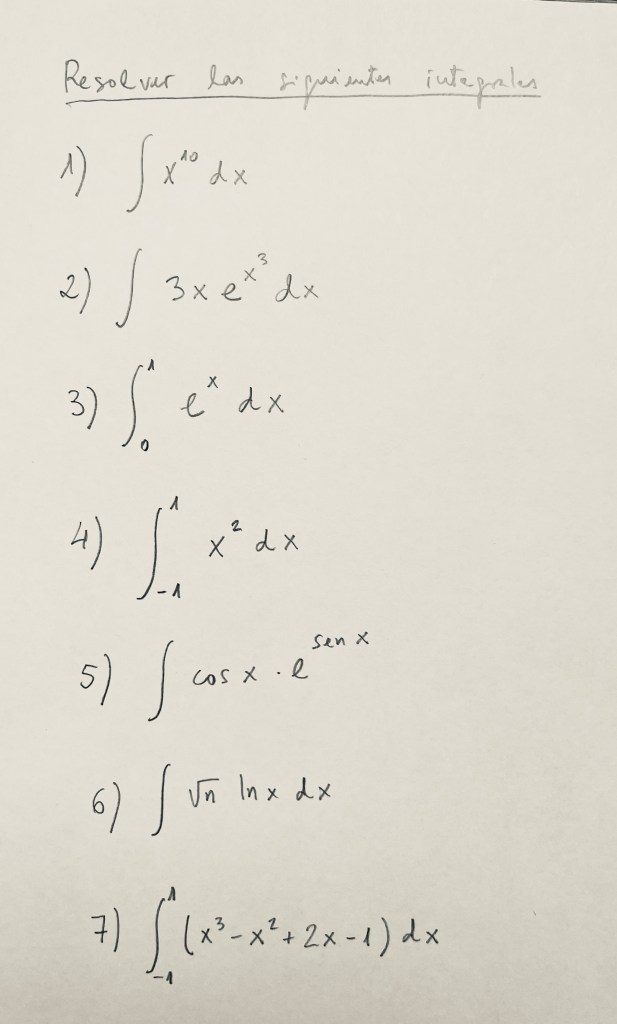 Resolver las siguientes integrales
1) ∫ x¹⁰ dx
2) ∫ 3x e^(x³) dx
3) ∫₀¹ eˣ dx
4) ∫₋₁¹ x² dx
5) ∫ cos x · e^(sen x)
6) ∫ √n ln x dx
7) ∫₋₁¹ (x³ - x² + 2x - 1) dx